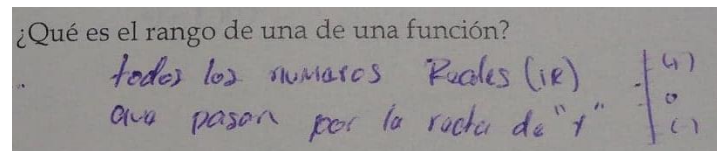 ¿Qué es el rango de una de una función?
todos los numeros Reales (IR)
que pasan por la recta de "Y"
(+)
0
(-)